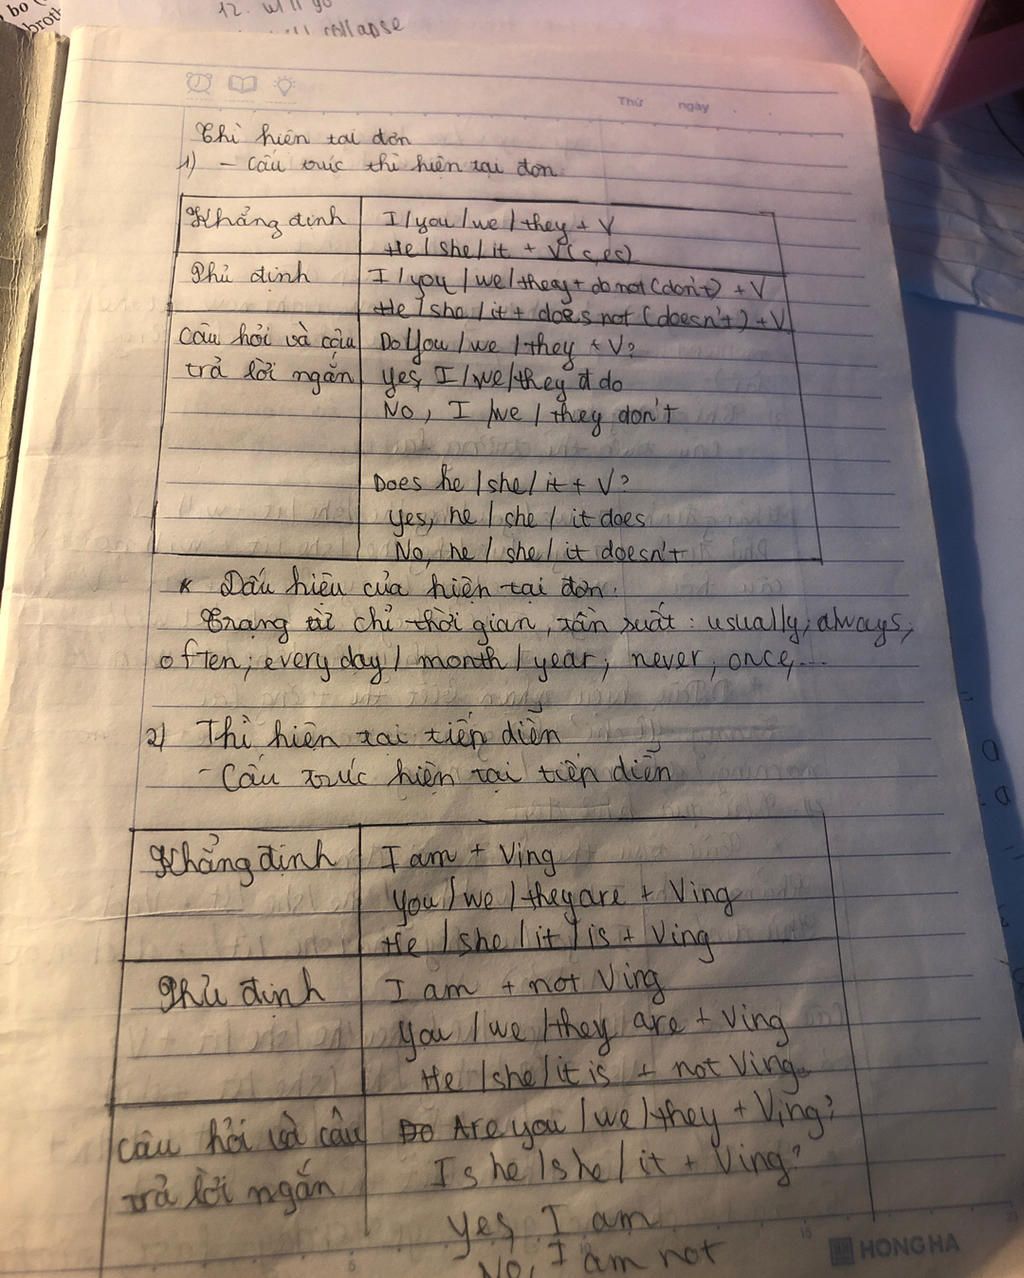 12. will go
collapse
bo
brot
Thứ ngày
Thì hiện tại đơn
1) - Cấu trúc thì hiện tại đơn
Khẳng định I/you/we/they + V
He/she/it + V(s,es)
Phủ định I/you/we/they + do not (don't) + V
He/she/it + does not (doesn't) + V
Câu hỏi và câu Do you/we/they + V?
trả lời ngắn Yes, I/we/they do
No, I/we/they don't
Does he/she/it + V?
Yes, he/she/it does
No, he/she/it doesn't
* Dấu hiệu của hiện tại đơn:
Trạng từ chỉ thời gian, tần suất: usually; always;
often; every day/month/year; never, once,...
2) Thì hiện tại tiếp diễn
- Cấu trúc hiện tại tiếp diễn
Khẳng định I am + Ving
You/we/they are + Ving
He/she/it/is + Ving
Phủ định I am + not Ving
You/we/they are + Ving
He/she/it is + not Ving
Câu hỏi và câu Do Are you/we/they + Ving?
trả lời ngắn Is he/she/it + Ving?
Yes, I am
No, I am not
HONG HA